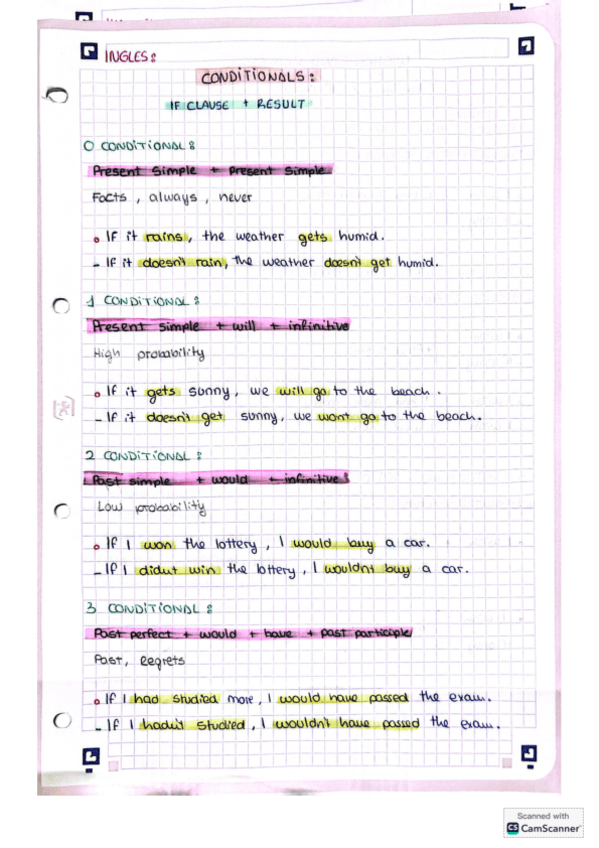 INGLES:
CONDITIONALS:
IF CLAUSE + RESULT
0 CONDITIONAL:
Present Simple + Present Simple
Facts, always, never
• If it rains, the weather gets humid.
- If it doesn't rain, the weather doesn't get humid.
1 CONDITIONAL:
Present simple + will + infinitive
High probability
• If it gets sunny, we will go to the beach.
- If it doesn't get sunny, we wont go to the beach.
2 CONDITIONAL:
Past simple + would + infinitive:
Low probability
• If I won the lottery, I would buy a car.
- If I didn't win the lottery, I wouldn't buy a car.
3 CONDITIONAL:
Past perfect + would + have + past participle
Past, Regrets
• If I had studied more, I would have passed the exam.
- If I hadn't studied, I wouldn't have passed the exam.
Scanned with
CS CamScanner